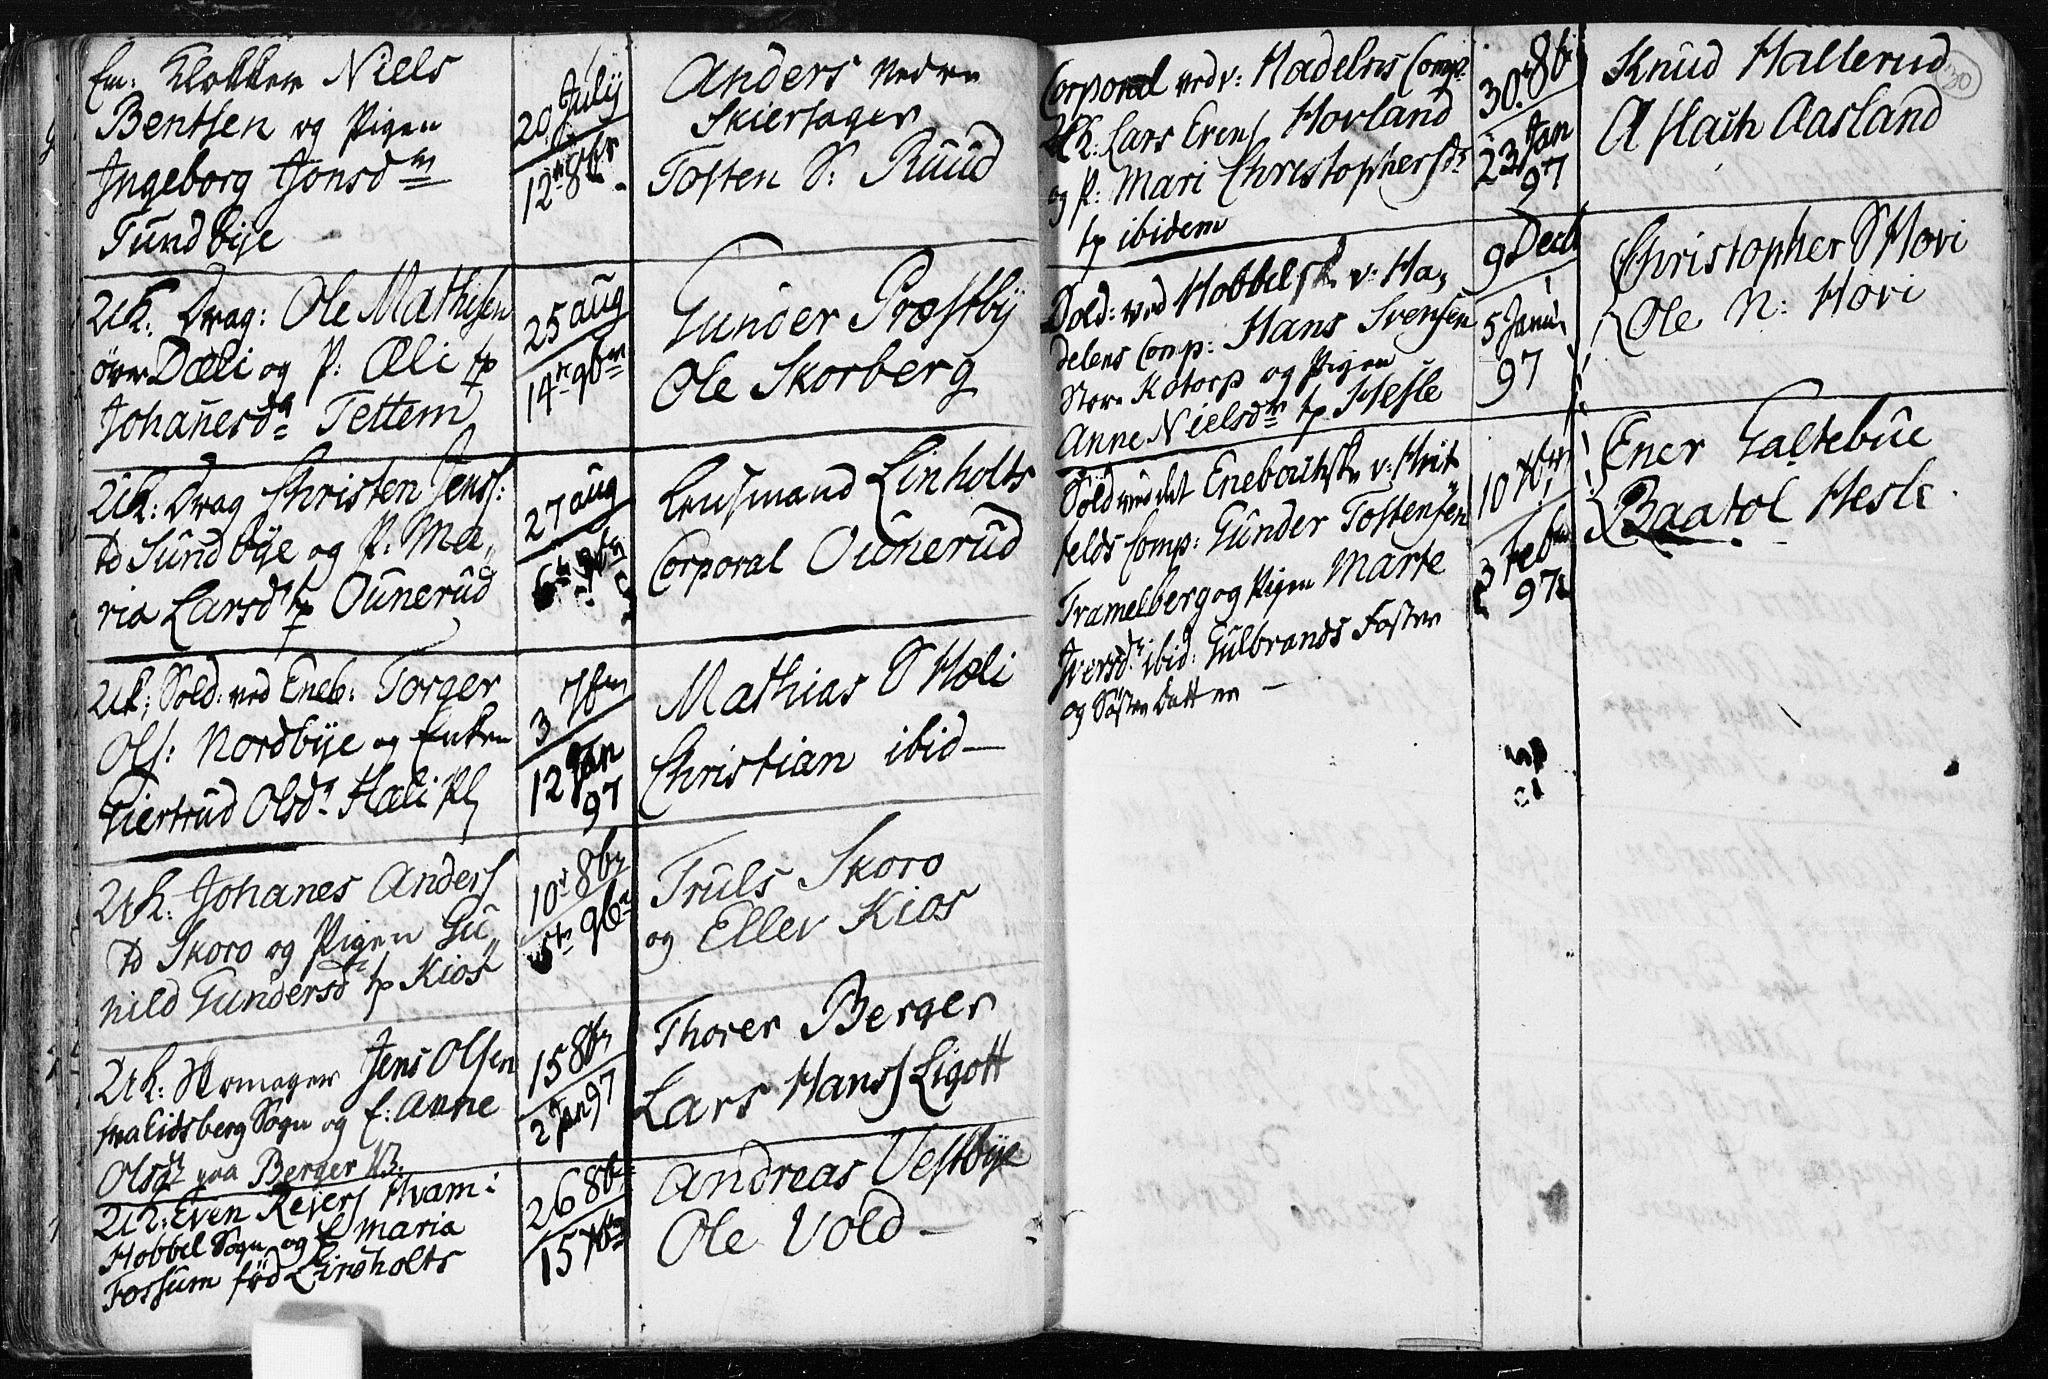 Em: Klokker Niels
Bentsen og Pigen
Ingeborg Jonsdr
Sundbÿe
20 Julÿ
12 8br.
Anders Nedre
Skiertager
Tosten S: Ruud
UK: Drag: Ole Mathisen
øvr Dæli og P: Æli tp
Johanesdr Tettem
25 aug
14 9br
Gunder Præstbÿ
Ole Skorberg
UK: Drag Christen Jens:
td Sundbÿe og P: Ma„
ria Larsdr tp Ounerud
27 aug
6 9br
Lensmand Linholts
Corporal Ounerud
UK: Sold: ved Eneb: Torger
Ols: Nordbÿe og Enken
Giertrud Olsdr Hæli Pl
3 7br
12 Jan
97
Mathias S Hæli
Christian ibid—
UK: Johanes Anders
td Skoro og Pigen Gu„
nild Gundersdr tp Kios
10 8br
5 9br
Truls Skoro
og Eller Kios
UK: Skomager Jens Olsen
fra Eidsberg Sogn og E: Anne
Olsdr paa Berger
15 8br
2 Jan 97
Thorer Berger
Lars Hans Ligott
UK: Even Reiers Hvam:
Hobbel Sogn og E Maria
Fossum fød Linholts
26 8br
15 7br
Andreas Vestbÿe
Ole Vold—
30
Corporal ved v: Hadelns Comp:
UK: Lars Evens Hovland
og P: Mari Christophersdr
tp ibidem
30. 8b
23 Jan
97
Knud Hallerud
Aslach Aasland
Sold: ved Hobbelsk v: Ha„
delens Comp: Hans Svensen
Store Kotorp og Pigen
Anne Nielsdr tp Hesle
9 Decb
5 Janu.
97
Christopher S Hovi
Ole N: Hovi
Sold ved det Enebaks v: Hvit
felds Comp: Gunder Tostensen
Tramelberg og Pigen Marte
Iversdr ibid: Gulbrands Foster
og Søster Datter —
10 Xbr
3 Feb
97
Ener Galtebue
Baatol Hesle